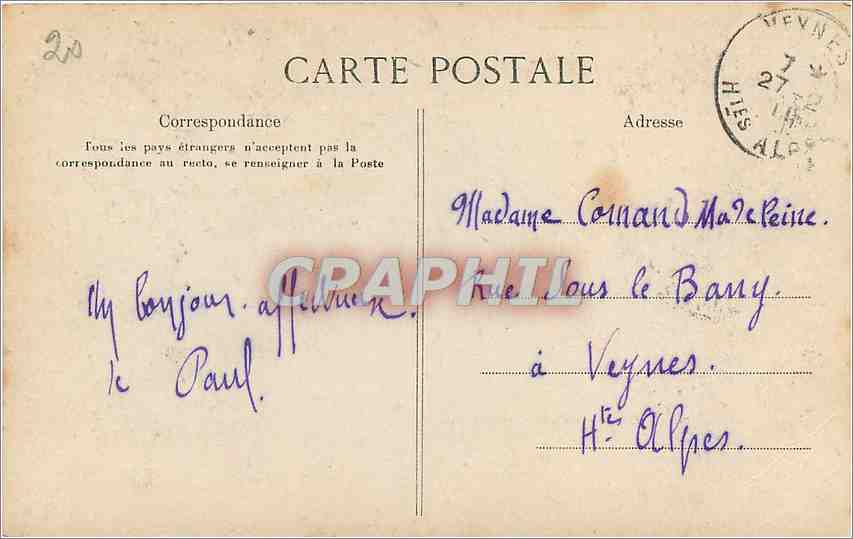 20
CARTE POSTALE
VEYNES
7
27
Htes ALPES
Correspondance
Tous les pays étrangers n'acceptent pas la
correspondance au recto, se renseigner à la Poste
Adresse
Un bonjour affectueux
de Paul.
Madame Comand Madeleine.
Rue Sous le Barry.
à Veynes.
Htes Alpes.
CPAPHIL